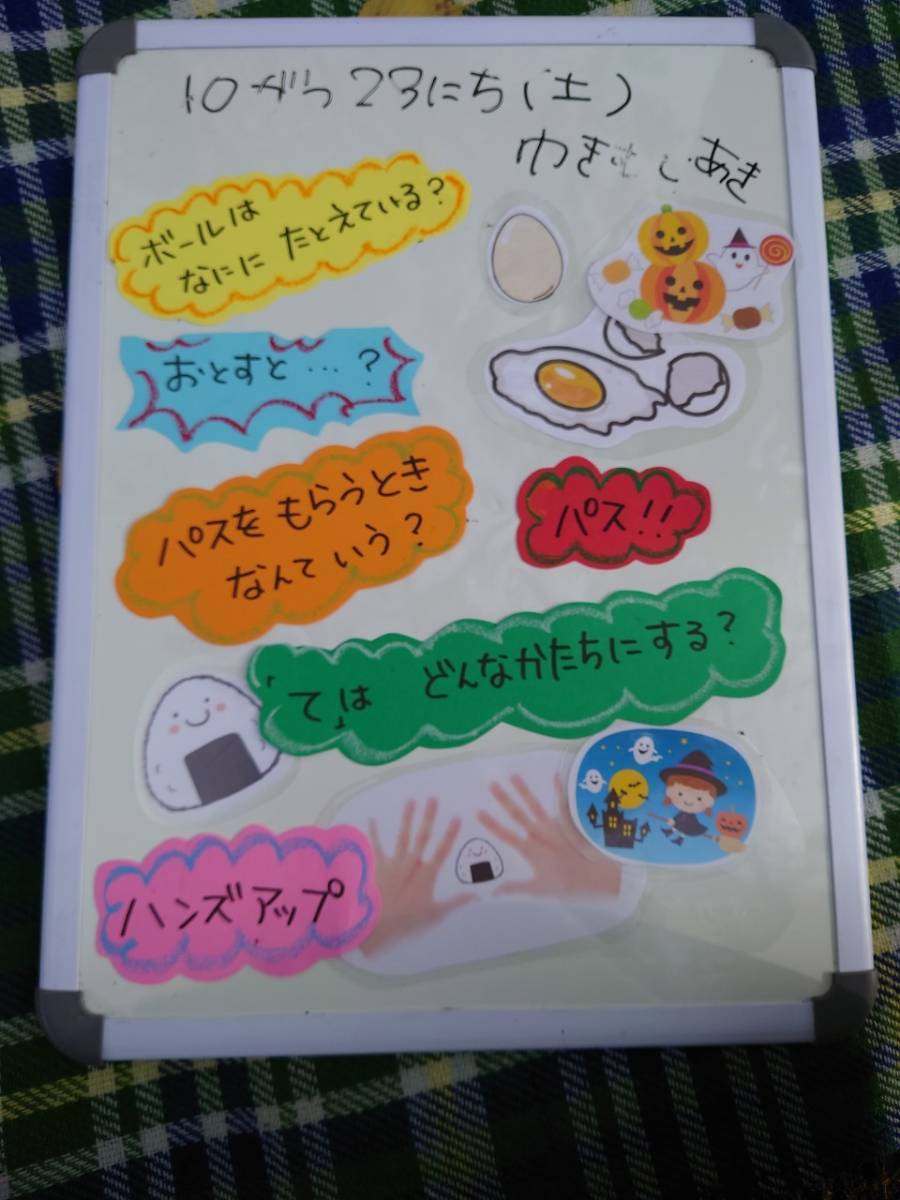 10がつ23にち(土)
あき
ボールは
なにに たとえている?
おとすと…?
パスを もらうとき
なんて いう?
パス!!
「て」は どんなかたちにする?
ハンズアップ